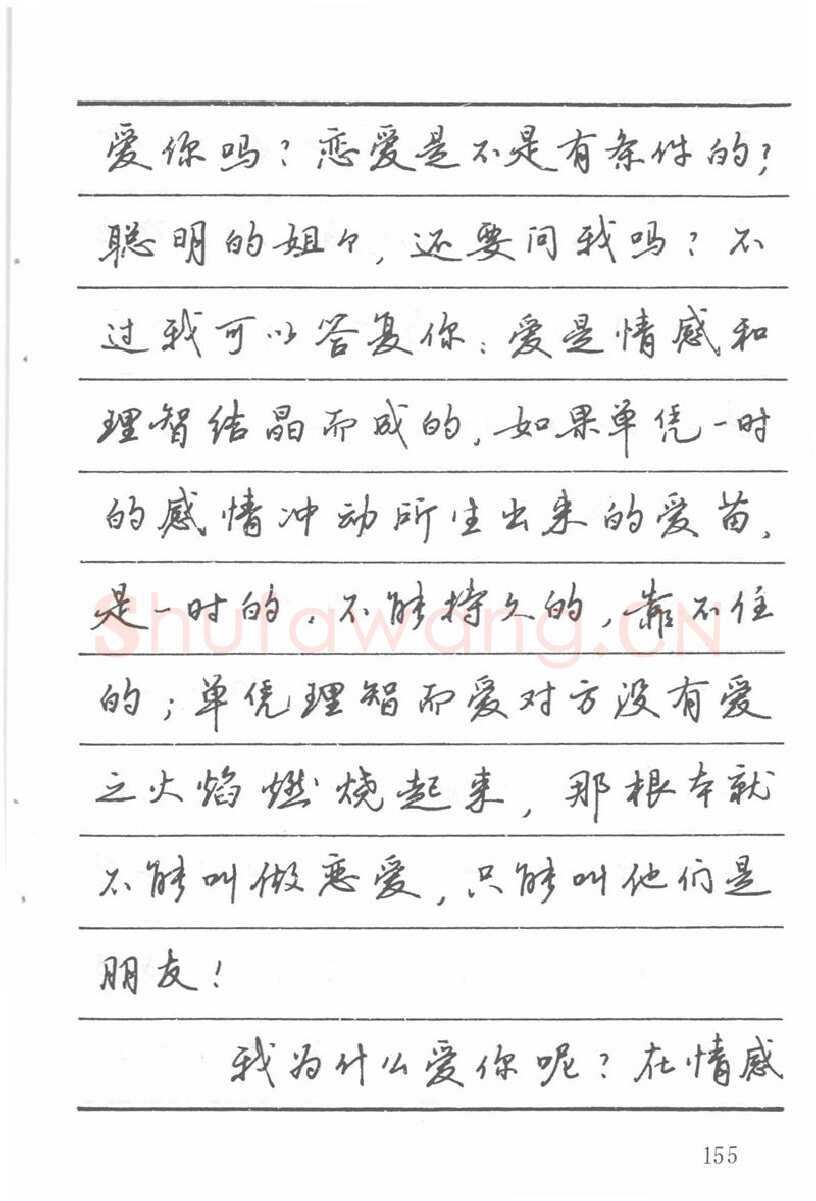 爱你吗?恋爱是不是有条件的?
聪明的姐々,还要问我吗?不
过我可以答复你:爱是情感和
理智结晶而成的,如果单凭一时
的感情冲动所生出来的爱苗,
是一时的,不能持久的,靠不住
Shufawang.CN
的;单凭理智而爱对方没有爱
之火焰燃烧起来,那根本就
不能叫做恋爱,只能叫他们是
朋友!
我为什么爱你呢?在情感
155